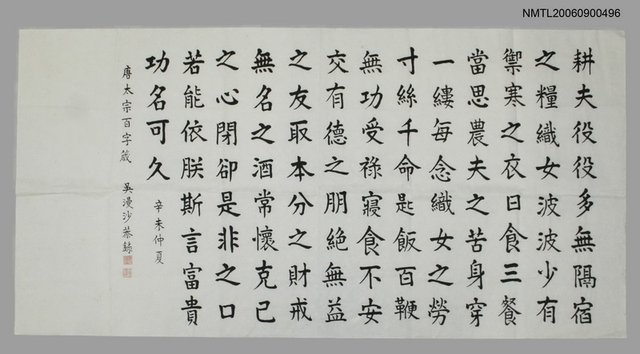 NMTL20060900496
耕夫役役多無隔宿
之糧織女波波少有
禦寒之衣日食三餐
當思農夫之苦身穿
一縷每念織女之勞
寸絲千命匙飯百鞭
無功受祿寢食不安
交有德之朋絕無益
之友取本分之財戒
無名之酒常懷克己
之心閉卻是非之口
若能依朕斯言富貴
功名可久
辛未仲夏
唐太宗百字箴 吳漫沙恭錄